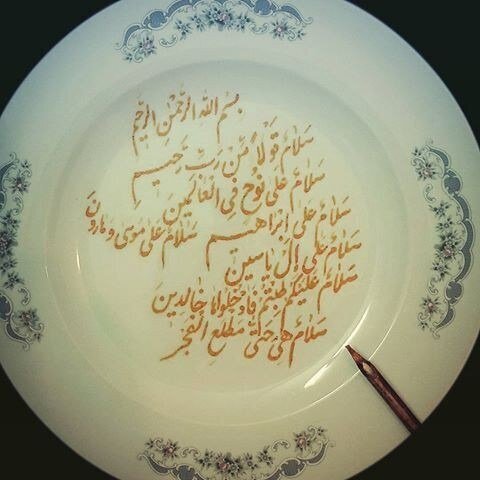 بسم الله الرحمن الرحیم
سَلامٌ قَوْلاً مِنْ رَبٍّ رَحِیمٍ
سَلامٌ عَلی نُوحٍ فِی الْعالَمِینَ
سَلامٌ عَلی اِبْراهیم سَلامٌ عَلی مُوسی وَ هارُونَ
سَلامٌ عَلی اِلْ یاسین
سَلامٌ عَلَیْکُمْ طِبْتُمْ فَادْخُلُوها خالِدینَ
سَلامٌ هِیَ حَتّی مَطْلَعِ الْفَجْرِ